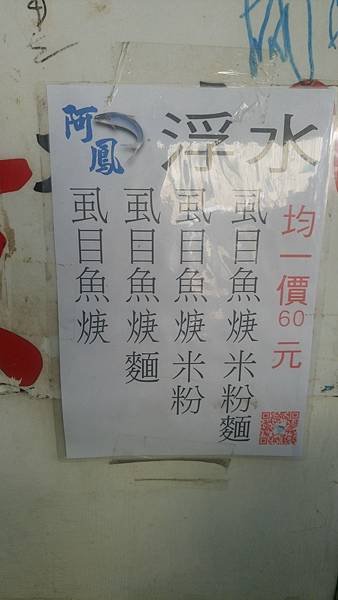 阿鳳
浮水
均一價60元
虱目魚焿米粉麵
虱目魚焿米粉
虱目魚焿麵
虱目魚焿